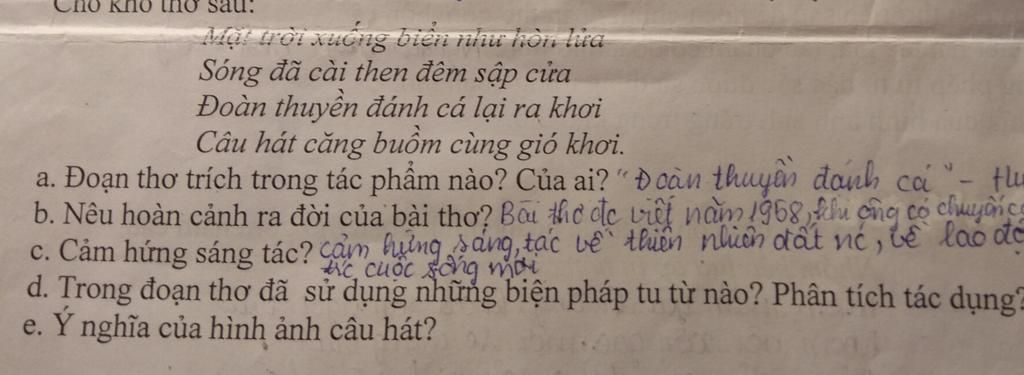 Cho khổ thơ sau:
Mặt trời xuống biển như hòn lửa
Sóng đã cài then đêm sập cửa
Đoàn thuyền đánh cá lại ra khơi
Câu hát căng buồm cùng gió khơi.
a. Đoạn thơ trích trong tác phẩm nào? Của ai? "Đoàn thuyền đánh cá" -
b. Nêu hoàn cảnh ra đời của bài thơ? Bài thơ đc viết năm 1958, khi ông có chuyến
c. Cảm hứng sáng tác? cảm hứng sáng tác về thiên nhiên đất nc, về lao
cuộc sống mới
d. Trong đoạn thơ đã sử dụng những biện pháp tu từ nào? Phân tích tác dụng?
e. Ý nghĩa của hình ảnh câu hát?